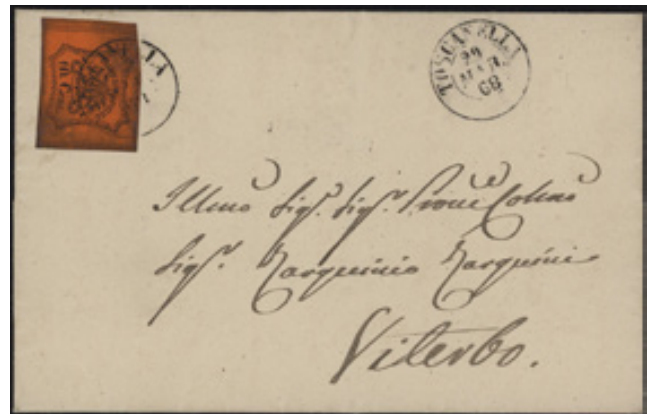 TOSCANELLA
29
MAR.
68
Illmo Sigr. Sigr. Prone Colmo
Sigr. Tarquinio Tarquini
Viterbo.